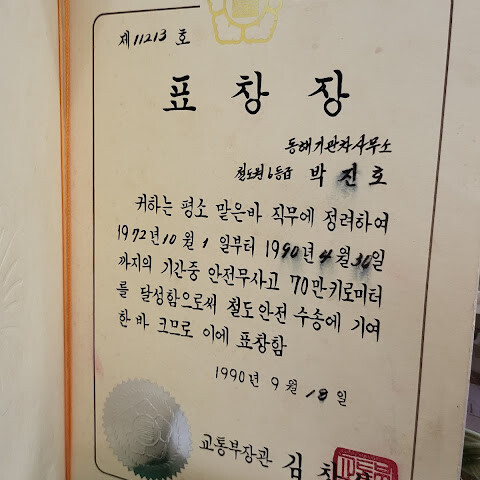 제 11213 호
표 창 장
동해기관차사무소
철도원 6등급 박 진 호
귀하는 평소 맡은바 직무에 정려하여
1972년 10월 1일부터 1990년 4월 30일
까지의 기간중 안전무사고 70만키로미터
를 달성함으로써 철도안전 수송에 기여
한바 크므로 이에 표창함
1990년 9월 18일
교통부장관 김 창